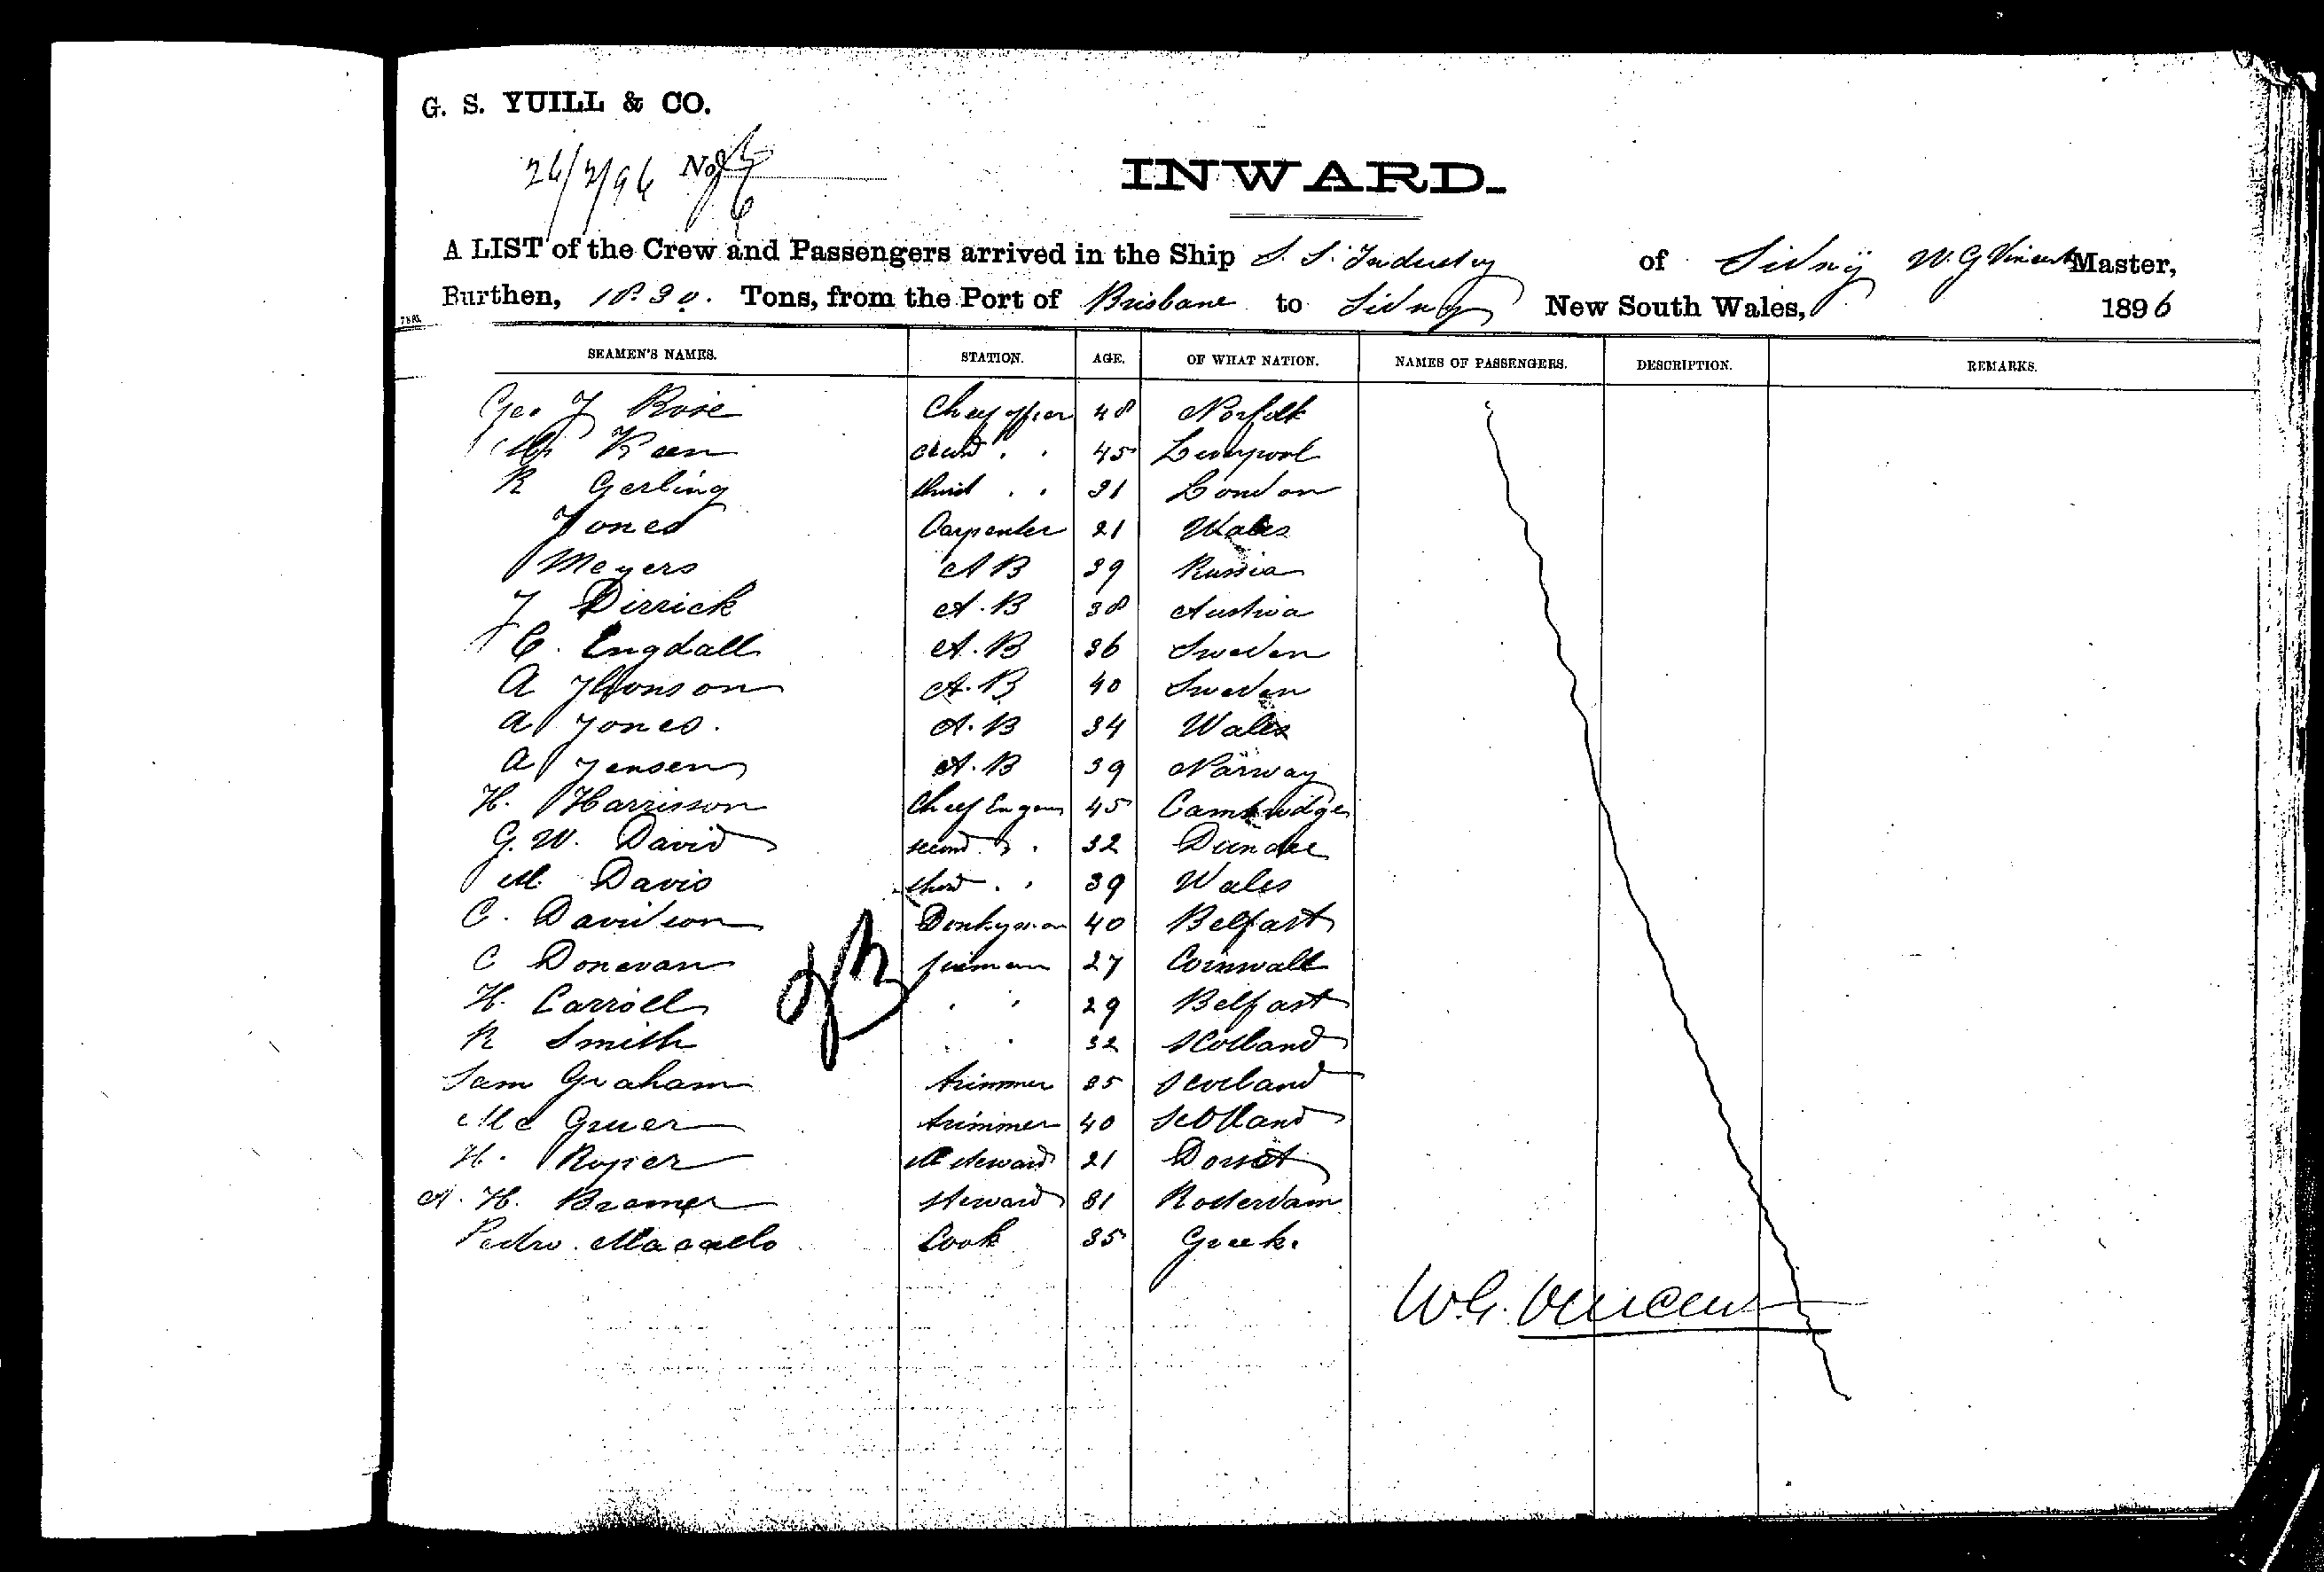 G. S. YUILL & CO.
INWARD.
A LIST of the Crew and Passengers arrived in the Ship S. S. Industry of Sidny W. G Vincent Master,
Burthen, 1830. Tons, from the Port of Brisbane to Sidny New South Wales, 1896
SEAMEN'S NAMES. STATION. AGE. OF WHAT NATION. NAMES OF PASSENGERS. DESCRIPTION. REMARKS.
Geo J Rose 48 Norfolk
Keen 45 Liverpool
R Gerling third . . 31 London
Jones Carpenter 21 Wales
Meyers A B 39 Russia
J Dirrick A. B 38 Austria
C. Engdall A. B 36 Sweden
A Jhonson A. B 40 Sweden
A Jones. A. B 34 Wales
A Jensen A. B 39 Norway
H. Harrisson 45 Cambridge
G. W. David second . . 32 Dundee
M. Davis third . . 39 Wales
C. Davidson Donkyman 40 Belfast
C Donevan fireman 27 Cornwall
H. Carroll . . 29 Belfast
R Smith . 32 Scotland
Sam Graham trimmer 35 Scotland
Mc Gruer trimmer 40 Scotland
H. steward 21 Dorset
A. H. Bramer steward 31 Rotterdam
Pedro Cook 35 Greek.
W. G. Vincent